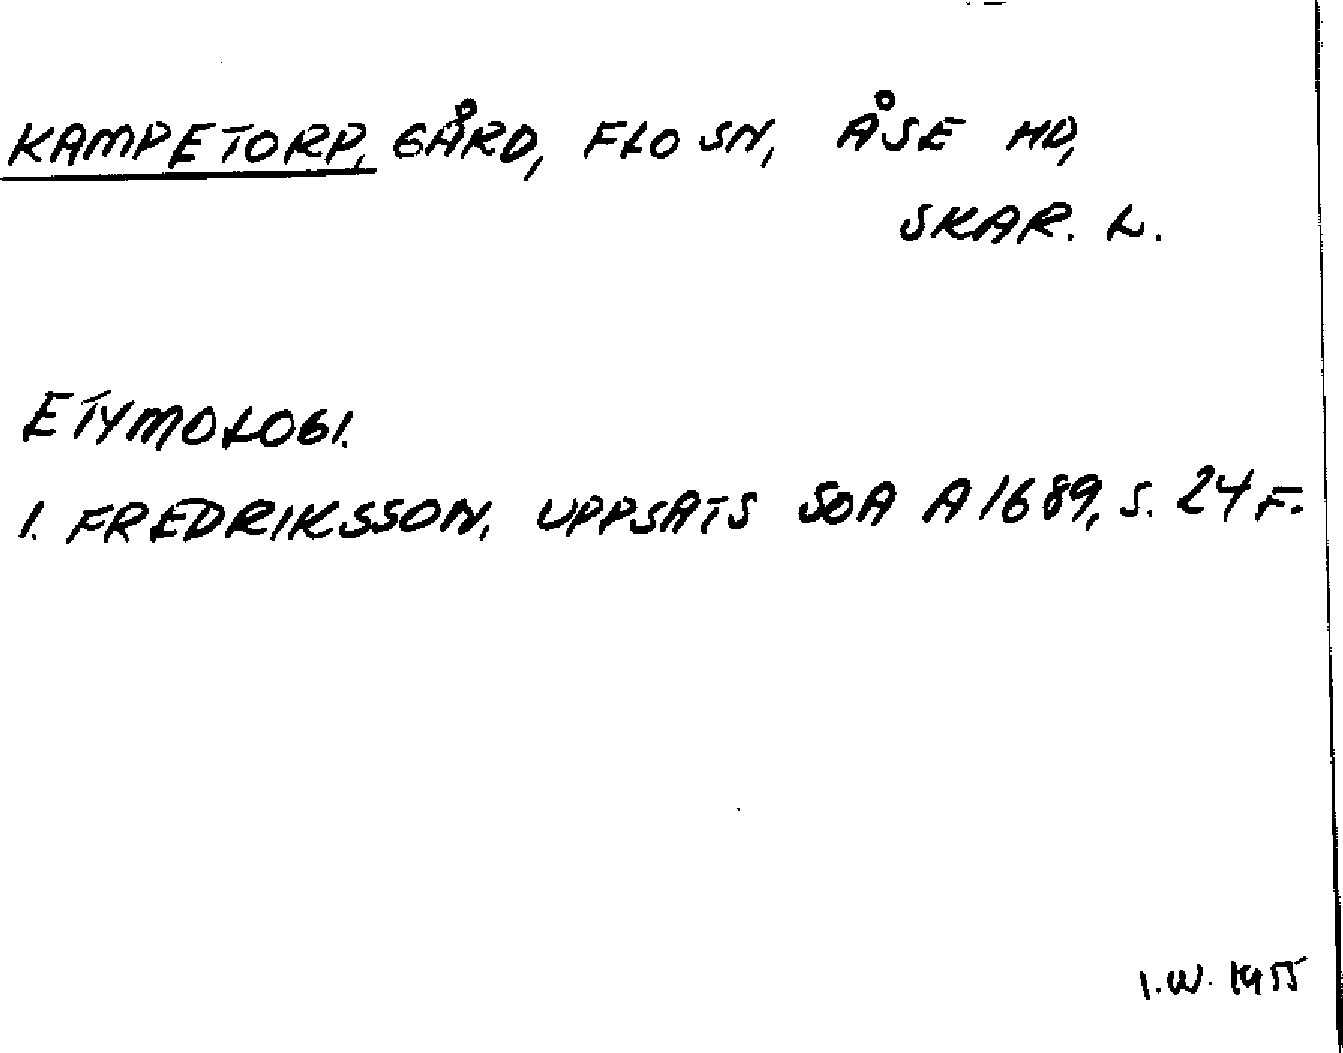 KAMPETORP, GÅRD, FLO SN, ÅSE HD,
SKAR. L.
ETYMOLOGI.
I. FREDRIKSSON, UPPSATS SOA A 1689, S. 24 F.
I.W. 1955